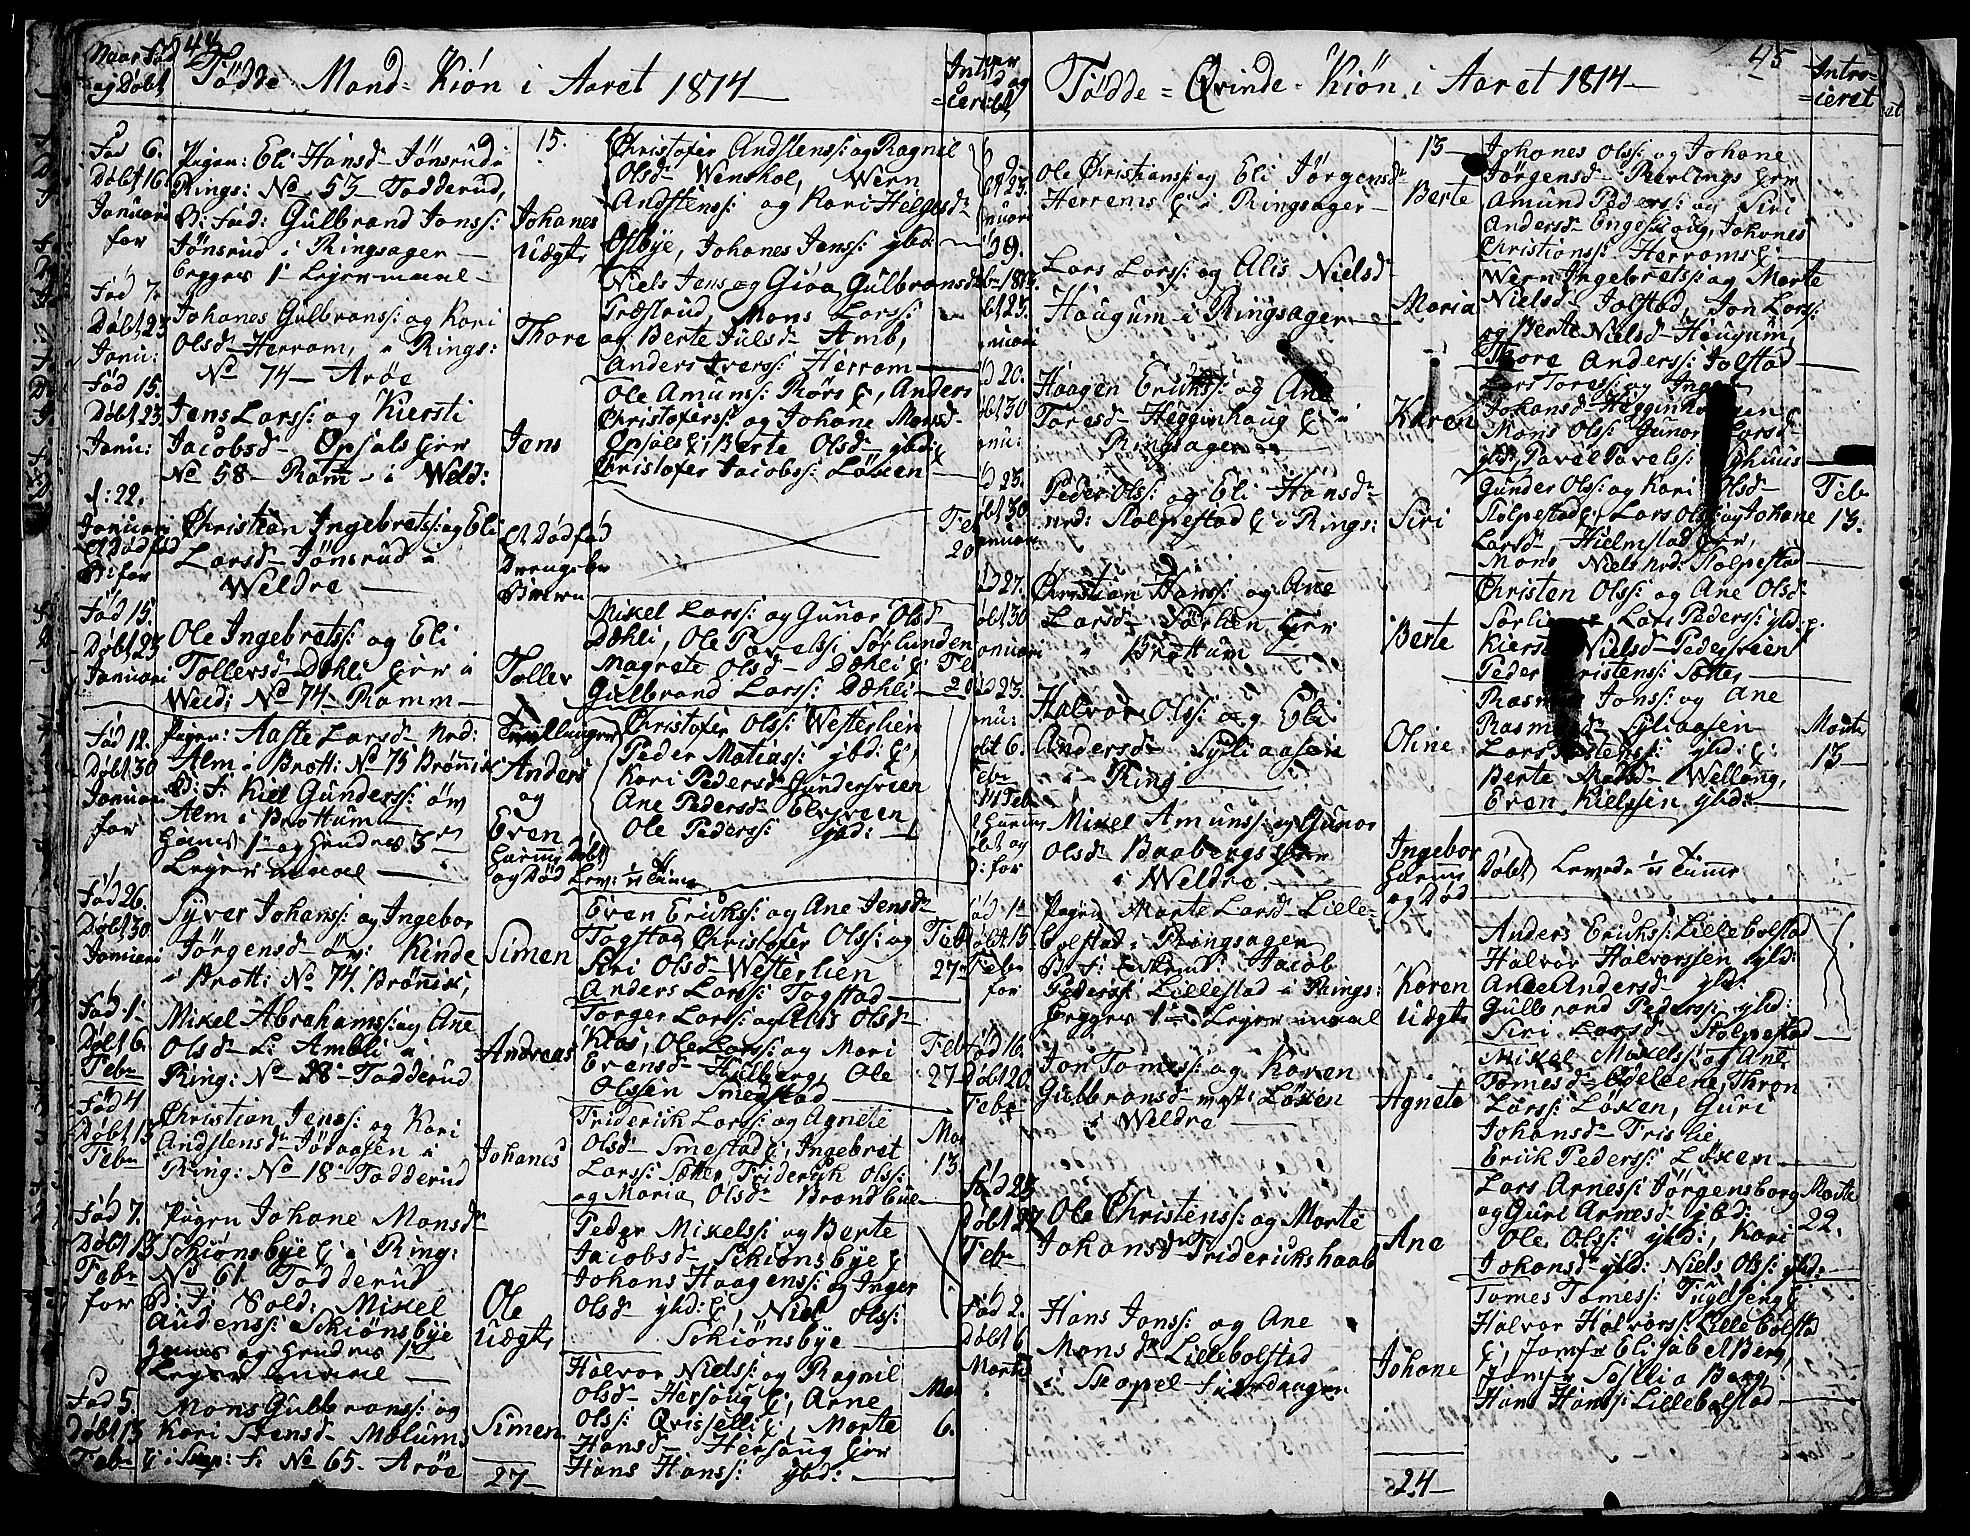 44
Naar Fød
og Døbt
Fødde Mand-Kiøn i Aaret 1814
Fød 6.
Døbt 16.
Januari
for
Pigen: Eli Hansd Jønsrud
Rings: No 53 Fodderud,
B: Fad: Gulbrand Jonss:
Jønsrud i Ringsager
begges 1 Leyermaal
15.
Johanes
Uægte
Christofer Andstenss: og Ragnil
Olsd Wenskol, Wern
Andstenss: og Kari Helgesd
Ofbye, Johanes Jenss: ybd:
Fød 7.
Døbt 23
Janu:
Johanes Gulbranss: og Kari
Olsd Herram, i Rings:
No 74 Arøe
Thore
Niels Jens og Gioa Gulbransd
Træslrud, Mons Larss:
og Berte Julsd Amb,
Anders Iverss: Herram
Fød 15.
Døbt 23
Janu:
Jens Larss: og Kiersti
Jacobsd Opsals Eier
No 58 Ram i Weld:
Jens
Ole Amuns Rørs E, Anders
Christoferss: og Johane Monsd
Opsals E, Berte Olsd ybd:
Christofer Jacobss: Løken
d: 22.
Januari
Et Dødfød
B: for
Christian Ingebretss: og Eli
Larsd Jønsrud i
Weldre
Et Dødfød
Drengebr
Feb
20
Fød 15.
Døbt 23
Januari
Ole Ingebretss: og Eli
Tollersd Dæhli Eier i
Weld: No 74 Ramm
Toller
Mikel Larss: og Gunor Olsd
Dæhli, Ole Pavelss: Sørlunden
Magrete Olsd Dæhli E
Gulbrand Larss: Dæhli
Feb
20
Fød 12.
Døbt 30
Januari
for
Pigen: Aaste Larsd
Alm i Brott: No 75 Brønnik
B: F: Kiel Gunderss:
Alm i Brottum
hans 1te og hendes 3die
Leyermaal
Tvillinger
Anders
og
Even
Christofer Olss: Westerlien
Peder Matiass: ybd: E,
Kari Pedersd Gundersveen
Ane Pedersd
Ole Pederss: ybd:
Fød 26.
Døbt 30
Januari
Syver Johanss: og Ingebor
Jørgensd øv: Kinde
i Brott: No 74 Brønnik,
Simen
Even Erickss: og Ane Jensd
Togstad Christofer Olss: og
Siri Olsd Westerlien
Anders Larss: Togstad
Feb
27
Fød 1
Døbt 6.
Febr
Mikel Abrahamss: og Ane
Olsd L: Ambli i
Ring: No 28 Fodderud
Andreas
Torger Larss: og Alis Olsd
Klos, Ole Larss: og Mari
Evensd Kilberg, Ole
Olssen Smestad
Feb
27
Fød 4
Døbt 13
Febr
Christian Jenss: og Kari
Andstensd Jøraasen i
Ring: No 18 Fodderud
Johanes
Friderick Larss: og Agnete
Olsd Smestad E, Ingebret
Larss: Sætter Friderik Olss:
og Maria Olsd Brandbue
Mar
13
Fød 7.
Døbt 13
Febr
for
Pigen Johane Monsd
Schiønsbye E i Ring:
No 61. Fodderud
B: F: Sold: Mikel
Audenss: Schiønsbye
hans og hendes 1te
Leyermaal
Ole
Uægte
Peder Mikelss: og Berte
Jacobsd Schiønsbye E
Johans Haagenss: og Inger
Olsd ybd: E, Niel Olss:
Schiønsbye
Fød 5.
Døbt 13
Febr
Mons Gulbranss: og
Kari Stensd Mælums
E i No 65. Arøe
Simen
27
Halvor Nielss: og Ragnil
Olsd Hersoug E, Arne
Olss: Qvisselli E, Marte
Hansd Hersoug Eier
Hans Hanss: ybd:
Mar
6.
45
Fødde-Qvinde-Kiøn i Aaret 1814
Intro-
ceret
Ole Christianss: og Eli Jørgensd
Herrems E i Ringsager
13
Berte
Johanes Olss: og Johane
Jørgensd Berlings Eier
Amund Pederss: og Siri
Andersd Engeskoug, Johanes
Christianss: Herroms E:
Lars Larss: og Alis Nielsd
Haugum i Ringsager
Maria
Wern Ingebretss: og Marte
Nielsd Jolstad, Jon Larss:
og Berte Nielsd Haugum,
Thore Anderss: Jolstad
20.
30
Haagen Erickss: og Ane
Toresd Hegginhaug E i
Ringsager
Karen
Lars Toress: og Inger
Johansd
Mons Olss: Gunor Larsd
ybd: Pavel Pavelss:
23.
30
Peder Olss: og Eli Hansd
nrd: Stolpestad E i Rings:
Siri
Gunder Olss: og Kari Olsd
Stolpestad E, Lars Olss: og Johane
Larsd, Hielmstad Eier,
Mons Niels nrd: Stolpestad
Feb
13.
27.
30
Christian Hanss: og Ane
Larsd Sørlien Eier
i Brøttum
Berte
Christen Olss: og Ane Olsd
Sørlie Lars Pederss: ybd:
Kiersti Nielsd Pedersveen
Peder Christenss: Sætter
23.
6.
Feb
Halvor Olss: og Eli
Andersd Syliaasen
i Ring
Oline
Rasmus Jonss: og Ane
Rasmusd Syliaasen
Lars ybd: E:
Berte Welleng,
Even Kielssen ybd:
Marti
13
14 Feb
Mikel Amunss: og Gunor
Olsd Baabergs Eier
i Weldre
Ingebor
og Død
Døbt Levede ½ Time
Fød 1
Døbt 15
Febr
for
Pigen Marte Larsd Lille-
bolstad i Ringsager
B: F: Jacob
Pederss: Lillestad i Rings:
begges 1te Leyermaal
Karen
Uægte
Anders Erickss: Lillebolstad
Halvor Halvorssen ybd:
Ane Andersd ybd:
Gulbrand Pederss: ybd:
Siri Larsd Stolpestad
Fød 16
Døbt 20.
Febr
Jon Tomess: og Karen
Gulbransd Løken
i Weldre
Agnete
Mikel Mikelss: og Ane
Tomesd Ødeleene, Thron
Larss: Løken, Guri
Johansd Trislie,
Erick Pederss: Løken
Fød 23
Døbt 27
Febr
Ole Christenss: og Marte
Johansd Fridericks haab
Ane
Lars Arness: Jørgensborg
og Guri Arnesd ybd:
Ole Olss: ybd:, Kari
Johansd ybd: Niels Olss: ybd:
Marti
22.
Fød 2.
Døbt 6
Marti
Hans Janss: og Ane
Monsd Lillebolstad
i Stapel
Johane
24
Tomes Tomess: Fugelseng E
Halvor Halvorss: Lillebolstad
E, Jomfr Elisabet Berg,
Jomfr Berg,
Hans Hanss: Lillebolstad